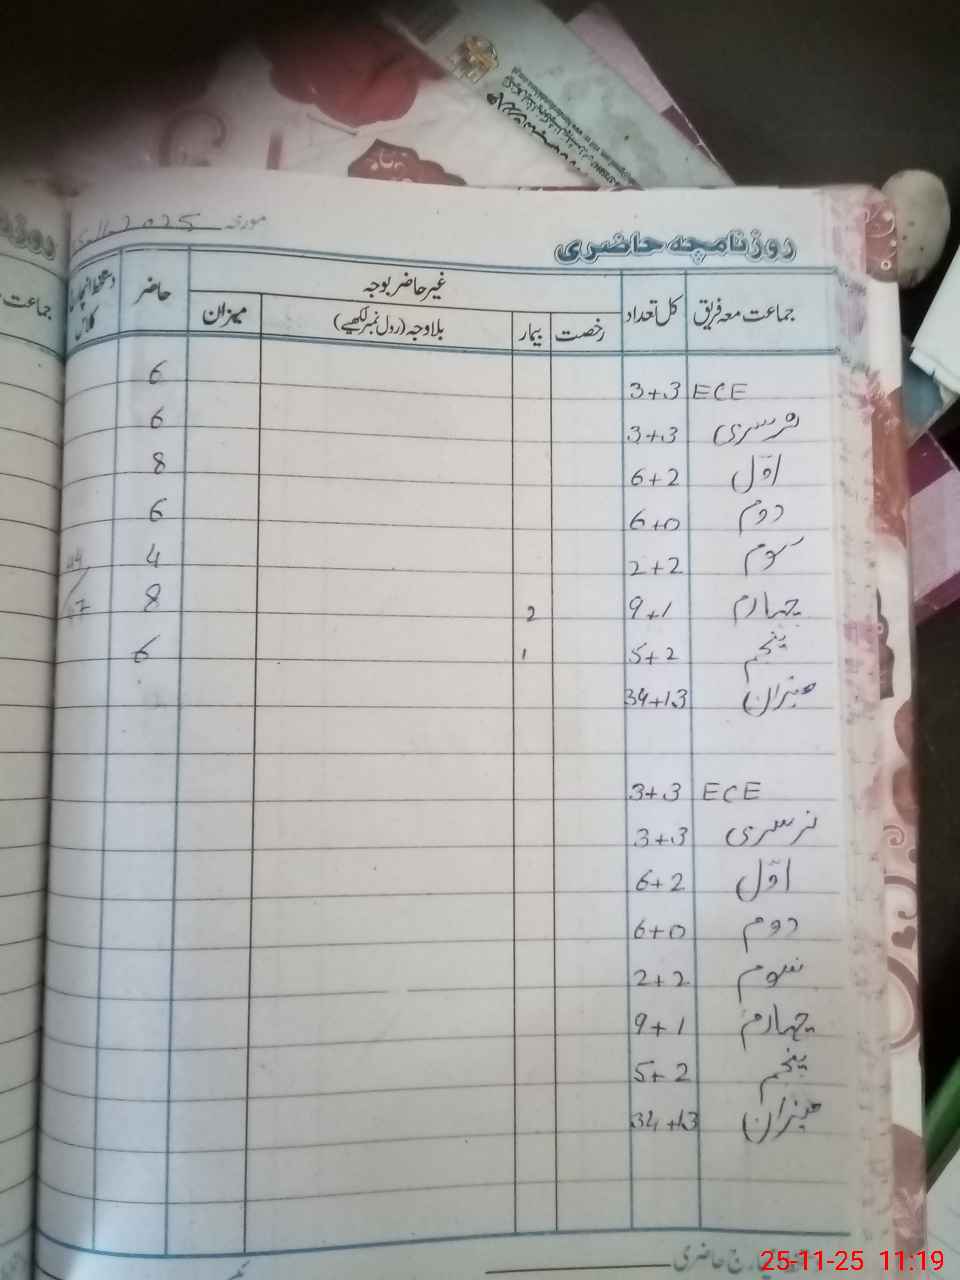 روزنامچہ حاضری
مورخہ 2025
جماعت معہ فریق کل تعداد غیر حاضر بوجہ حاضر دستخط انچارج کلاس
رخصت بیمار بلاوجہ (رول نمبر لکھیے) میزان
ECE 3+3 6
نرسری 3+3 6
اوّل 6+2 8
دوم 6+0 6
سوم 2+2 4
چہارم 9+1 2 8
پنجم 5+2 1 6
میزان 34+13
ECE 3+3
نرسری 3+3
اوّل 6+2
دوم 6+0
سوم 2+2
چہارم 9+1
پنجم 5+2
میزان 34+13
انچارج حاضری
25-11-25 11:19